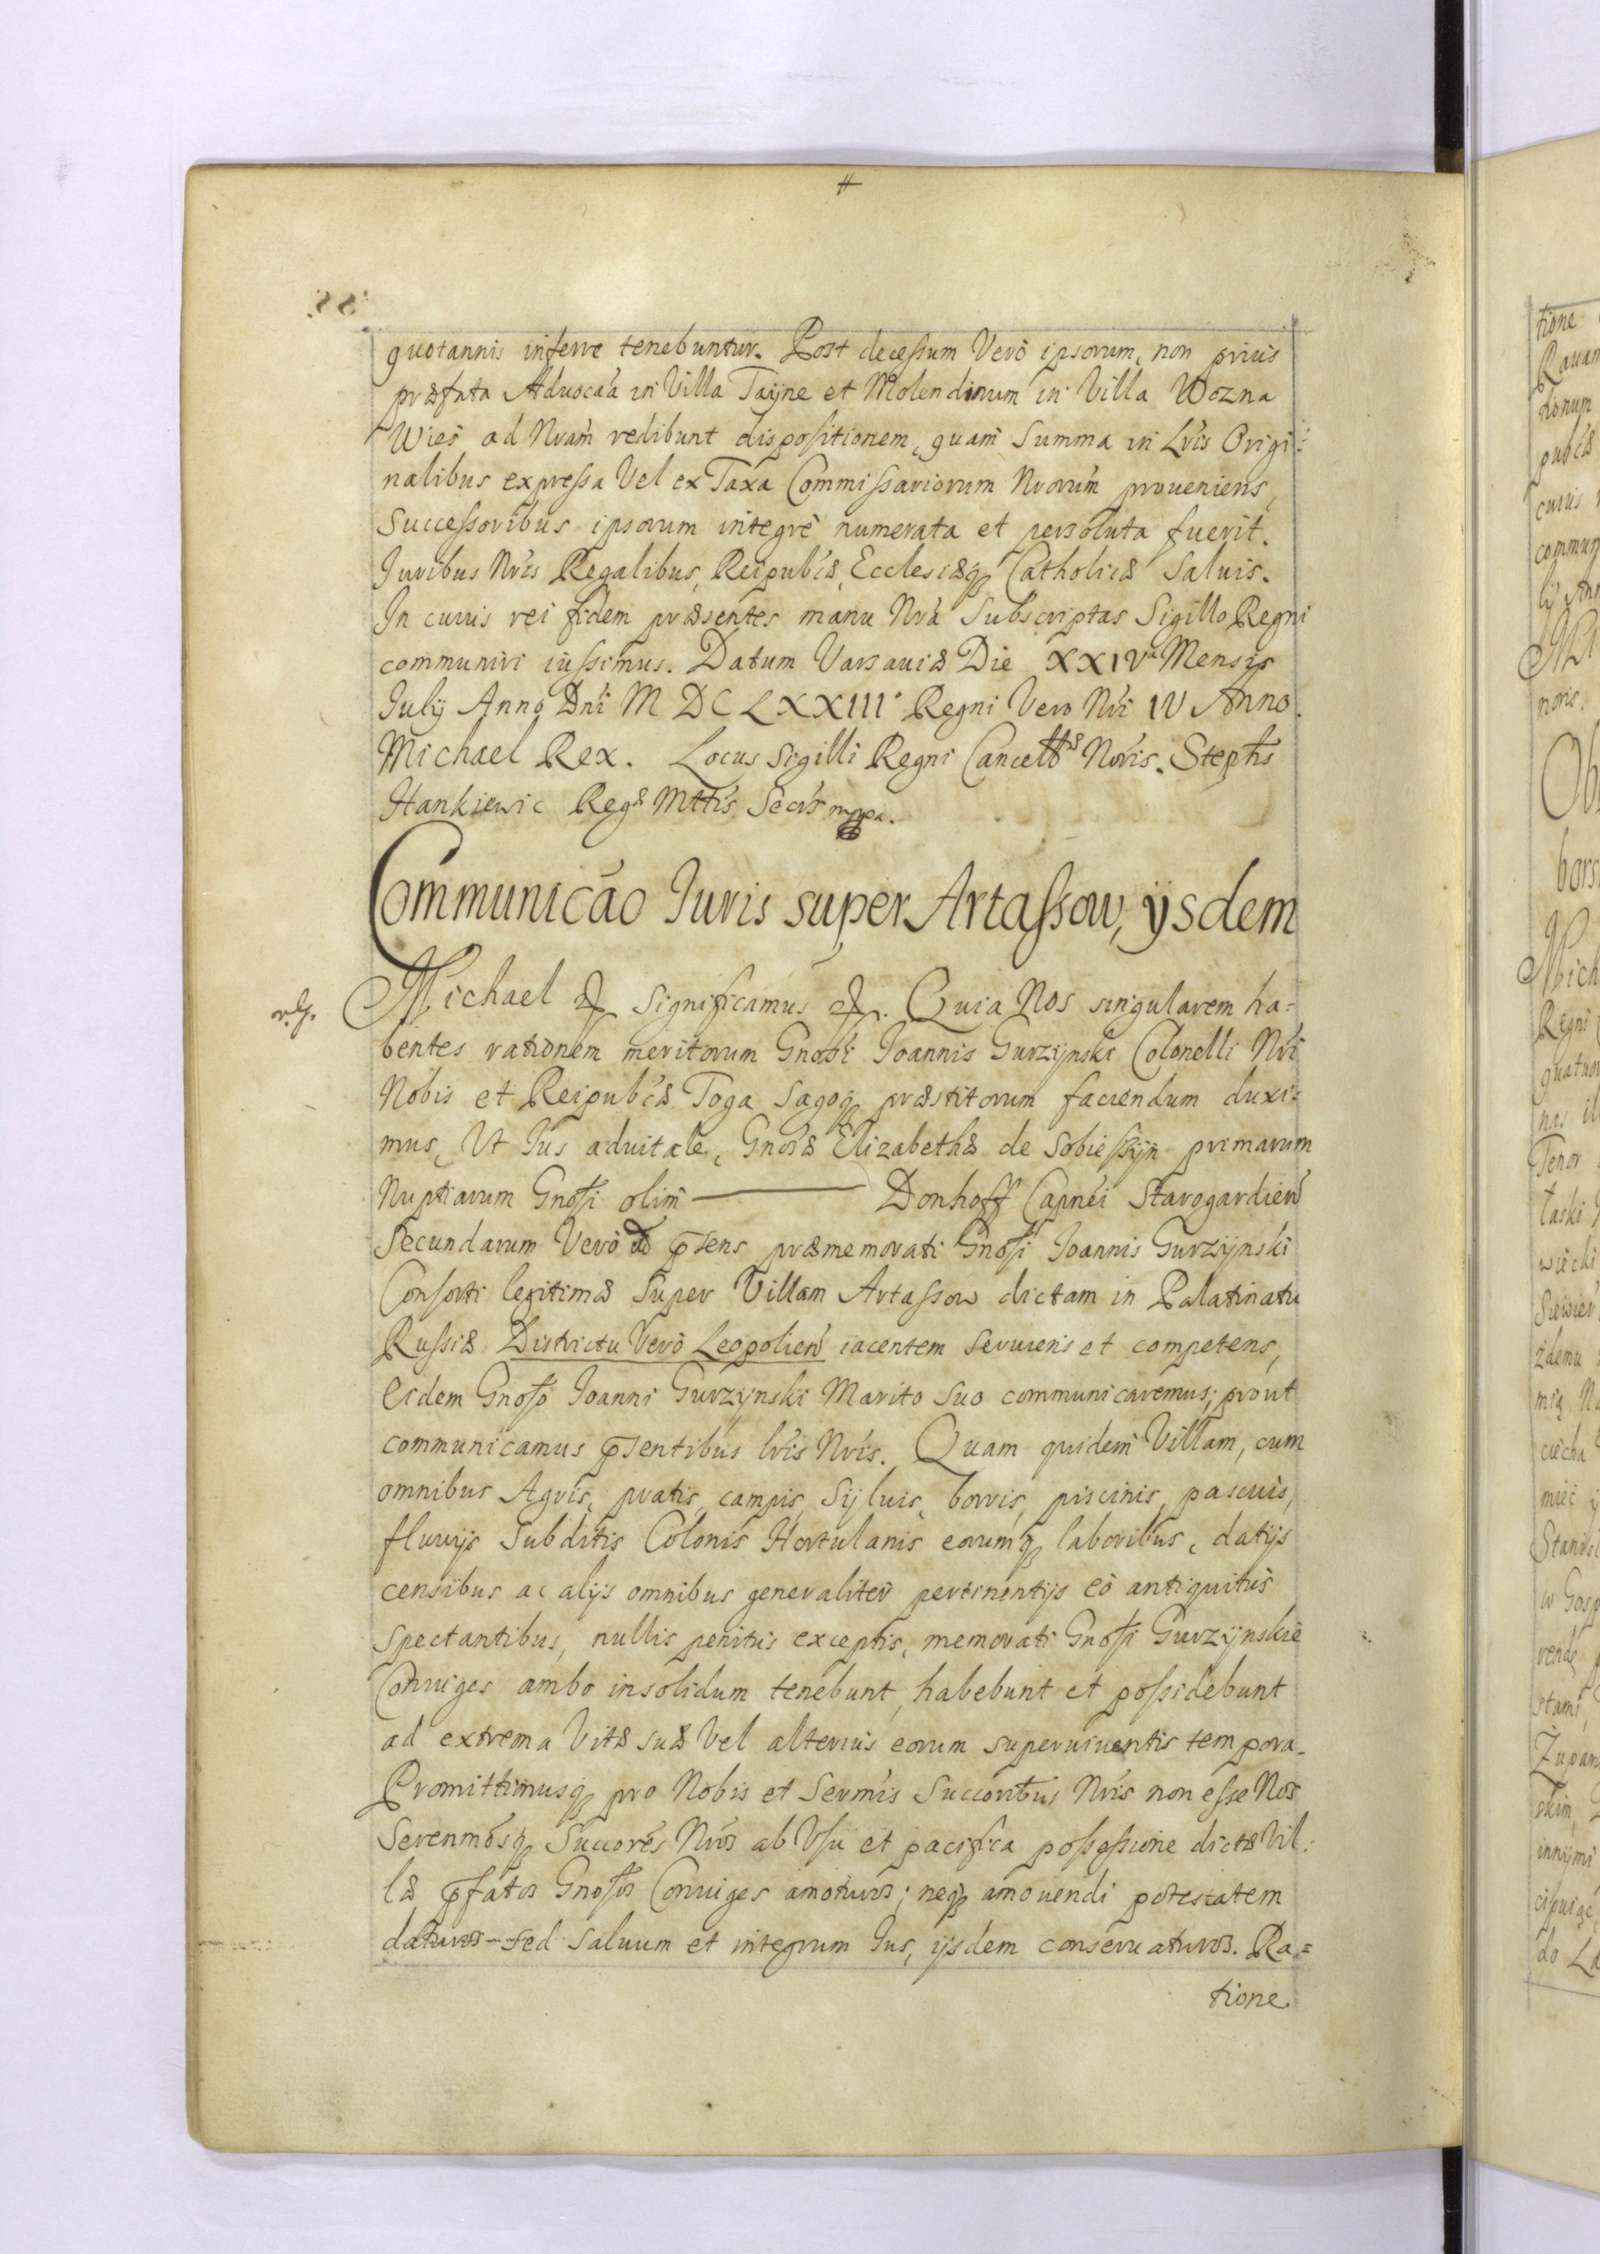 quotannis inferre tenebuntur. Post decessum Verò ipsorum, non prius
præfata Advocãa in Villa Tayne et Molendinum in Villa Wozna
Wies ad Nram redibunt dispositionem, quam Summa in Lris Origi:
nalibus expressa Vel ex Taxa Commissariorum Nrorum proueniens,
Successoribus ipsorum integrè numerata et persoluta fuerit.
Iuribus Nris Regalibus, Reipubcæ, Ecclesiæq Catholicæ Saluis.
In cuius rei fidem præsentes manu Nra Subscriptas Sigillo Regni
communiri iussimus. Datum Varsauiæ Die XXIVa Mensis
Iulij Anno Dni MDCLXXIII° Regni Vero Nri IV Anno.
Michael Rex. Locus Sigilli Regni Cancell Noris. Stephs
Hankiewic Regæ Mttis Secrs mppa.
Communicão Iuris super Artassow, ijsdem
Michael & Significamus &. Quia Nos singularem ha=
bentes rationem meritorum Gnosi Ioannis Gurzynski Colonelli Nri
Nobis et Reipubcæ Toga Sagoq præstitorum faciendum duxi=
mus, Ut Ius aduitale, Gnosæ Elizabethæ de Sobiessyn primarum
Nuptiarum Gnosi olim — Donhoff Capnei Starogardien
Secundarum Verò ad psens præmemorati Gnosi Ioannis Gurzynski
Consorti legitimæ Super Villam Artassow dictam in Palatinatu
Russiæ Districtu Verò Leopolien iacentem seruiens et competens,
Eidem Gnoso Ioanni Gurzynski Marito Suo communicaremus; prout
communicamus psentibus lris Nris. Quam quidem Villam, cum
omnibus Agris, pratis, campis, Syluis, borris, piscinis, pascuis,
fluuijs Subditis Colonis Hortulanis eorumq laboribus, datijs
censibus ac alijs omnibus generaliter pertinentijs eò antiquitus
Spectantibus, nullis penitus exceptis, memorati Gnosi Gurzynskie
Coniuges ambo insolidum tenebunt, habebunt et possidebunt
ad extrema Vitæ suæ Vel alterius eorum superuiuentis tempora.
Promittimusq pro Nobis et Sermis Succoribus Nris non esse Nos
Serenmosq Succores Nros ab Vsu et pacifica possessione dictæ Vil:
læ pfatos Gnosos Coniuges amoturos; neq amouendi potestatem
daturos sed Saluum et integrum Ius, ijsdem conseruaturos. Ra=
tione